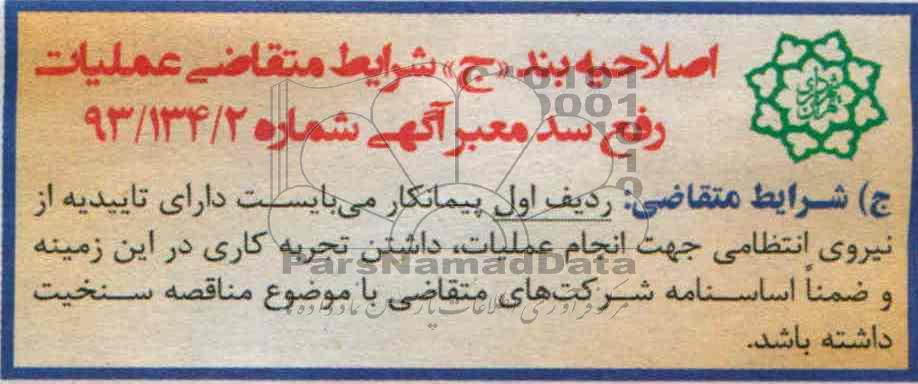 اصلاحیه بند «ج» شرایط متقاضی عملیات
رفع سد معبر آگهی شماره ۹۳/۱۳۴/۲
ج) شرایط متقاضی: ردیف اول پیمانکار می‌بایست دارای تاییدیه از
نیروی انتظامی جهت انجام عملیات، داشتن تجربه کاری در این زمینه
و ضمناً اساسنامه شرکت‌های متقاضی با موضوع مناقصه سنخیت
داشته باشد.
ParsNamadData